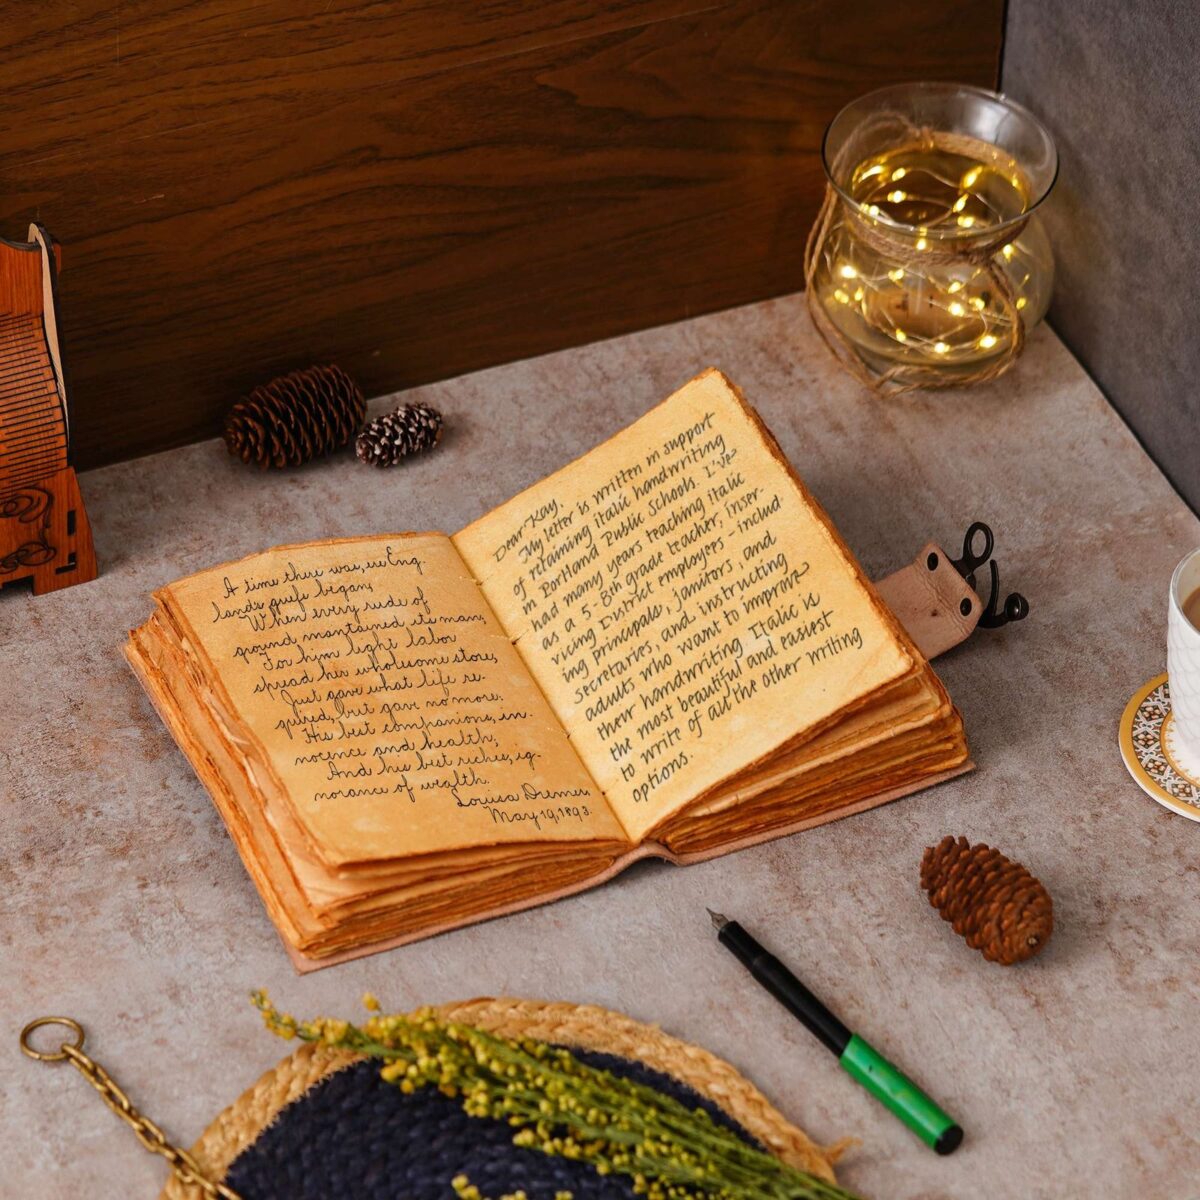 A time there was, ere Eng-
lands griefs began,
When every rude of
ground maintained its man,
For him light labor
spread her wholesome store,
Just gave what life re-
quired, but gave no more.
His best companions, in-
nocence and health;
And his best riches, ig-
norance of wealth.
Louisa
May 19, 1893.
Dear Kay,
My letter is written in support
of retaining italic handwriting
in Portland Public Schools. I've
had many years teaching italic
as a 5-8th grade teacher, inser-
vicing District employees - includ-
ing principals, janitors, and
secretaries, and instructing
adults who want to improve
their handwriting. Italic is
the most beautiful and easiest
to write of all the other writing
options.